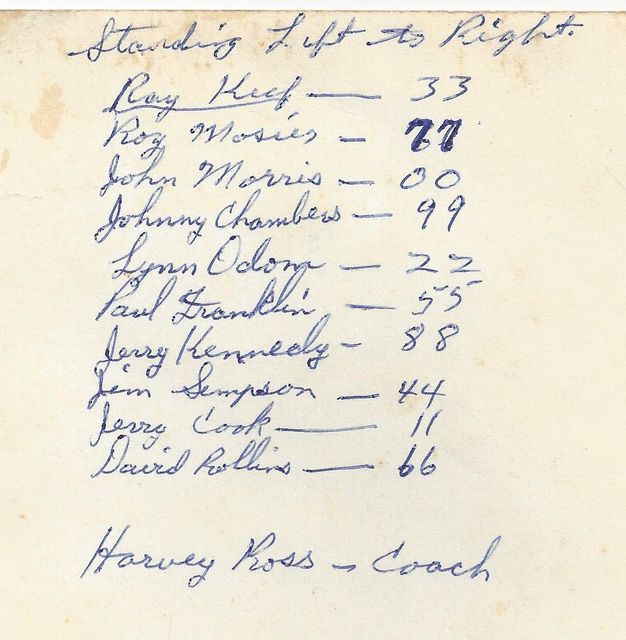 Standing Left to Right.
Ray Keef — 33
Roy Mosier — 77
John Morris — 00
Johnny Chambers — 99
Lynn Odom — 22
Paul Franklin — 55
Jerry Kennedy - 88
Jim Simpson — 44
Jerry Cook — 11
David Rollins — 66
Harvey Ross - Coach